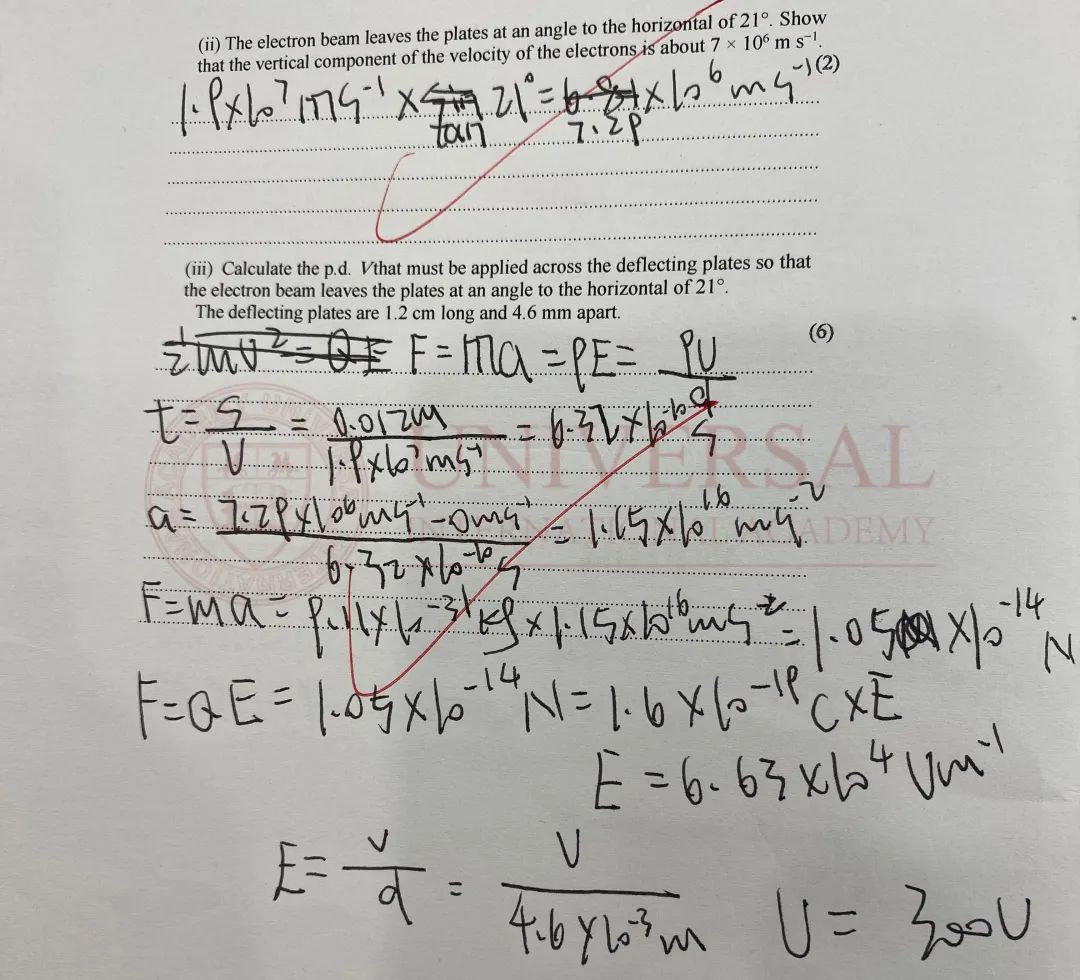 (ii) The electron beam leaves the plates at an angle to the horizontal of 21°. Show
that the vertical component of the velocity of the electrons is about 7 × 10⁶ m s⁻¹.
(2)
1.9×10⁷ ms⁻¹ × tan 21° = 7.29 ×10⁶ ms⁻¹
(iii) Calculate the p.d. Vthat must be applied across the deflecting plates so that
the electron beam leaves the plates at an angle to the horizontal of 21°.
The deflecting plates are 1.2 cm long and 4.6 mm apart.
(6)
½mv² = QE F = ma = qE = qU/d
t = s/v = 0.012m / 1.9×10⁷ms⁻¹ = 6.32×10⁻¹⁰ s
UNIVERSAL
a = 7.29×10⁶ms⁻¹ - 0ms⁻¹ / 6.32×10⁻¹⁰s = 1.15×10¹⁶ ms⁻²
ACADEMY
F = ma = 9.11×10⁻³¹ kg × 1.15×10¹⁶ ms⁻² = 1.05 ×10⁻¹⁴ N
F = QE = 1.05×10⁻¹⁴ N = 1.6×10⁻¹⁹ C×E
E = 6.63×10⁴ Vm⁻¹
E = V/d = V / 4.6×10⁻³m U = 300V